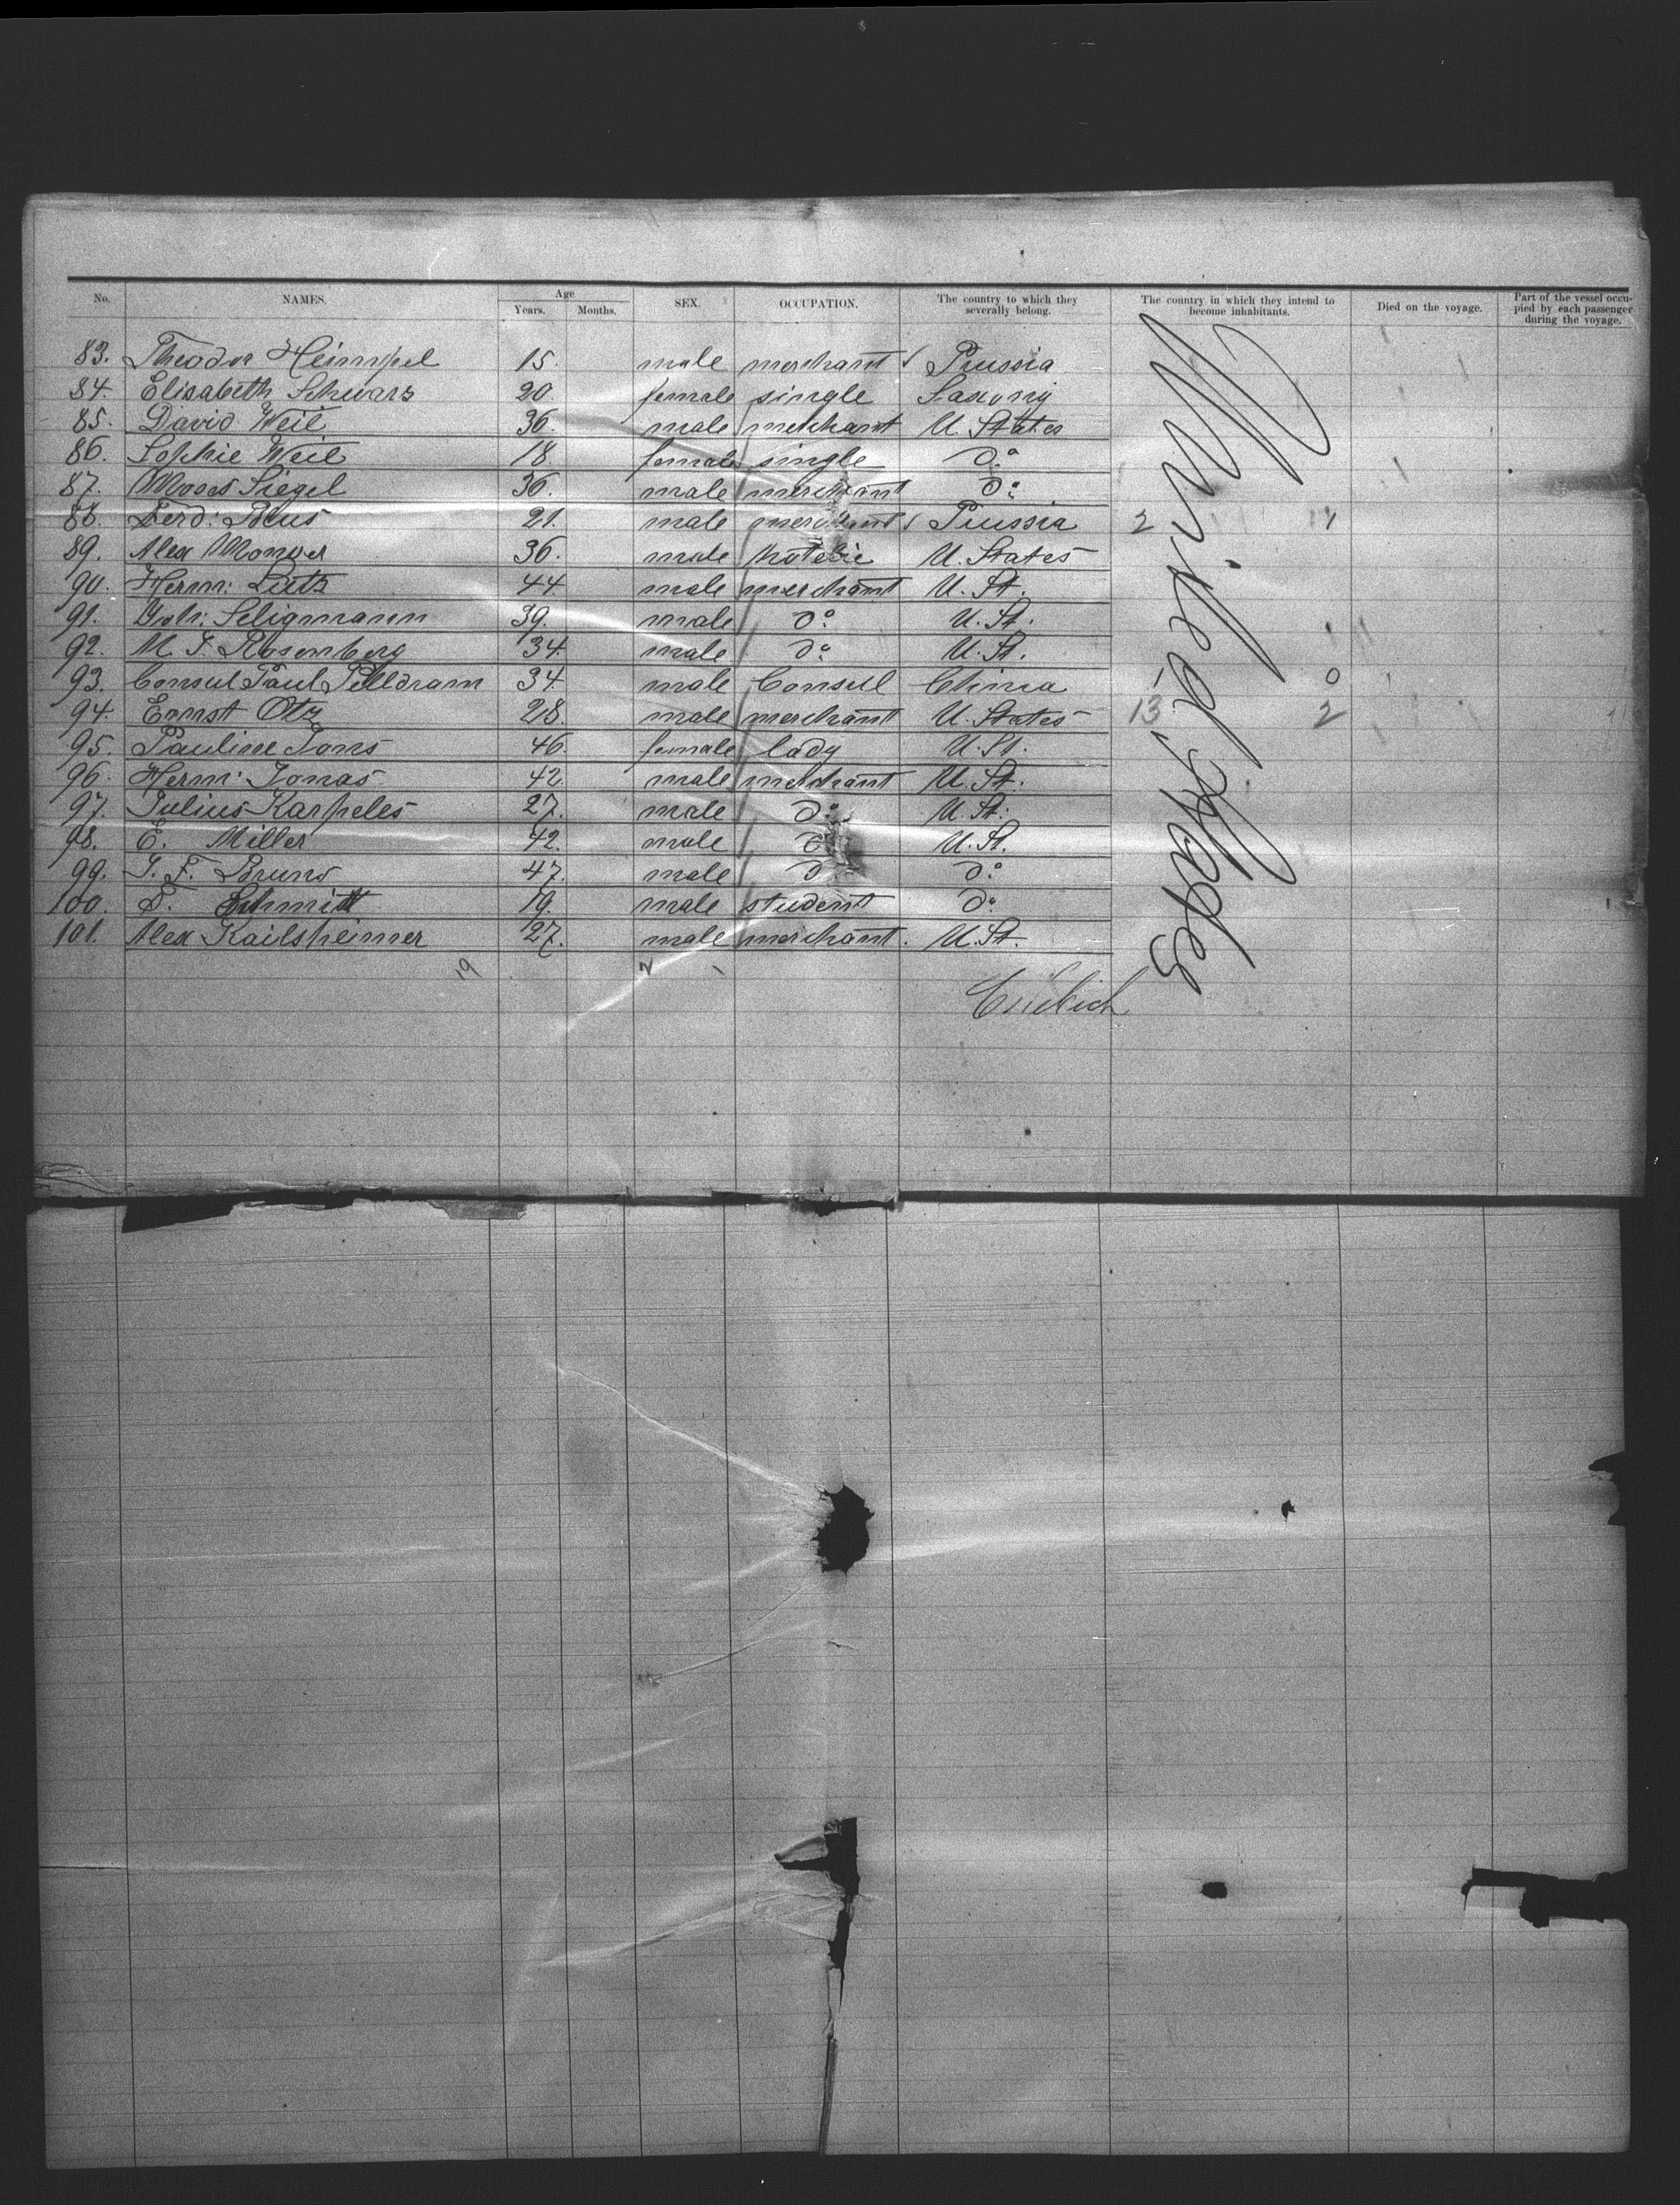 No. NAMES. Age Years. Months. SEX. OCCUPATION. The country to which they severally belong. The country in which they intend to become inhabitants. Died on the voyage. Part of the vessel occupied by each passenger during the voyage.
83. Theodor Heimpel 15. male merchant Prussia
84. Elisabeth Schwarz 20 female single Saxony
85. David Weil 36. male merchant U. States
86. Sophie Weil 18 female single do
87. Moses Siegel 36. male merchant do
88. Ferd: 21. male merchant Prussia 2
89. Alex 36. male U. States
90. Herm: Lutz 44 male merchant U. St.
91. Seligmann 39. male do U. St.
92. M. J. Rosenberg 34. male do U. St.
93. Consul Paul Pelldram 34 male Consul China 1 0
94. Ernst Otz 28. male merchant U. States 13 2
95. Pauline Jons 46. female lady U. St.
96. Herm: Jonas 42. male merchant U. St.
97. Julius Karpeles 27. male do U. St.
98. E. Miller 42. male do U. St.
99. J. F. Bruns 47. male do do
100. Schmidt 19. male student do
101. Alex Kailsheimer 27. male merchant. U. St.
19 2 1
United States